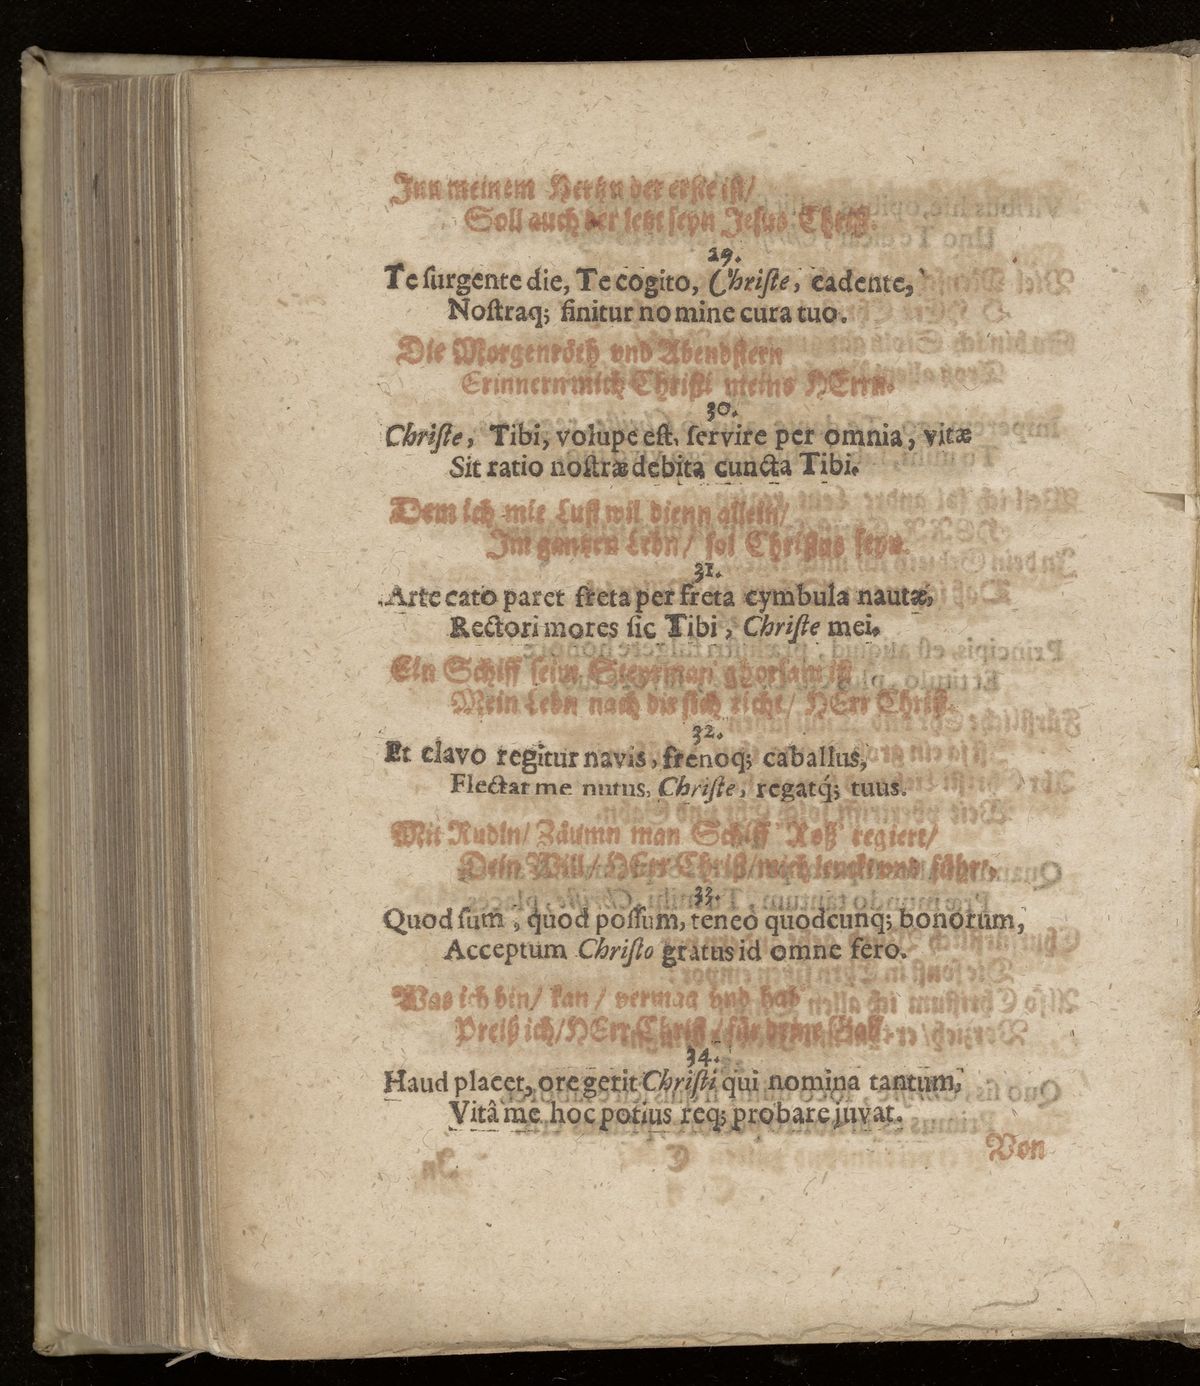 Inn meinem Hertzn der erste ist/
Soll auch der letzt seyn Jesus Christ.
29.
Te surgente die, Te cogito, Christe, cadente,
Nostraq; finitur nomine cura tuo.
Die Morgenröth vnd Abendstern
Erinnern mich Christi meins HErrn.
30.
Christe, Tibi, volupe est, servire per omnia, vitæ
Sit ratio nostræ debita cuncta Tibi.
Dem ich mit Lust wil dienn allein/
Im gantzen Lebn/ sol Christus seyn.
31.
Arte cato paret freta per freta cymbula nautæ,
Rectori mores sic Tibi, Christe mei.
Ein Schiff seim Steyrman ghorsam ist
Mein Lebn nach dir sich richt/ HErr Christ.
32.
Et clavo regitur navis, frenoq; caballus,
Flectat me nutus, Christe, regatq́; tuus.
Mit Rudln/ Zäumn man Schiff Roß regiert/
Dein Will/ HErr Christ/ mich lenckt vnd führt.
33.
Quod sum, quod possum, teneo quodcunq; bonorum,
Acceptum Christo gratus id omne fero.
Was ich bin/ kan/ vermag vnd hab
Preiß ich/ HErr Christ/ für deine Gab.
34.
Haud placet, ore gerit Christi qui nomina tantum,
Vitâ me hoc potius req; probare juvat.
Von